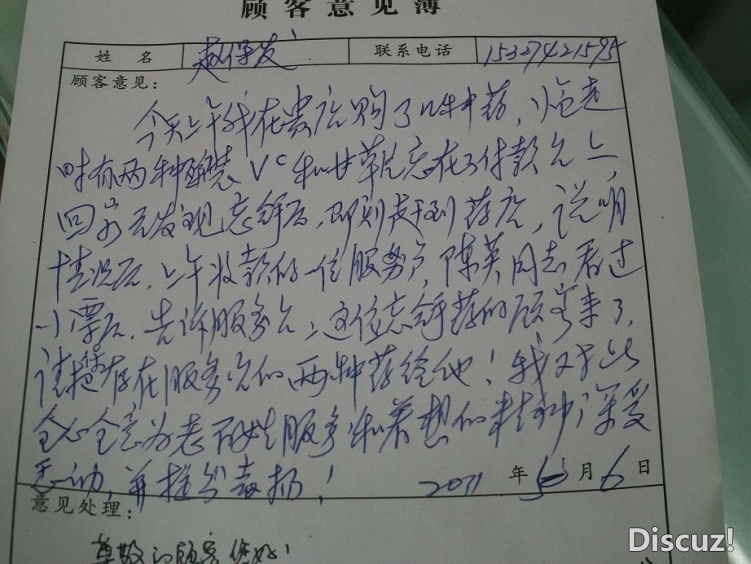 顾客意见簿
姓名 赵保发 联系电话 15327421595
顾客意见：
今天上午我在贵店购了几种中药，临走
时有两种瓶装VC和甘草片忘在了付款台上，
回家后发现忘拿后，即刻赶到药店，说明
情况后，上午收款的一位服务员陈英同志看过
小票后，告诉服务台：这位忘拿药的顾客来了，
请把存在服务台的两种药给他！我对此
全心全意为老百姓服务和着想的精神深受
感动，并提出表扬！ 2011年 月6日
意见处理：
尊敬的顾客您好！
Discuz!